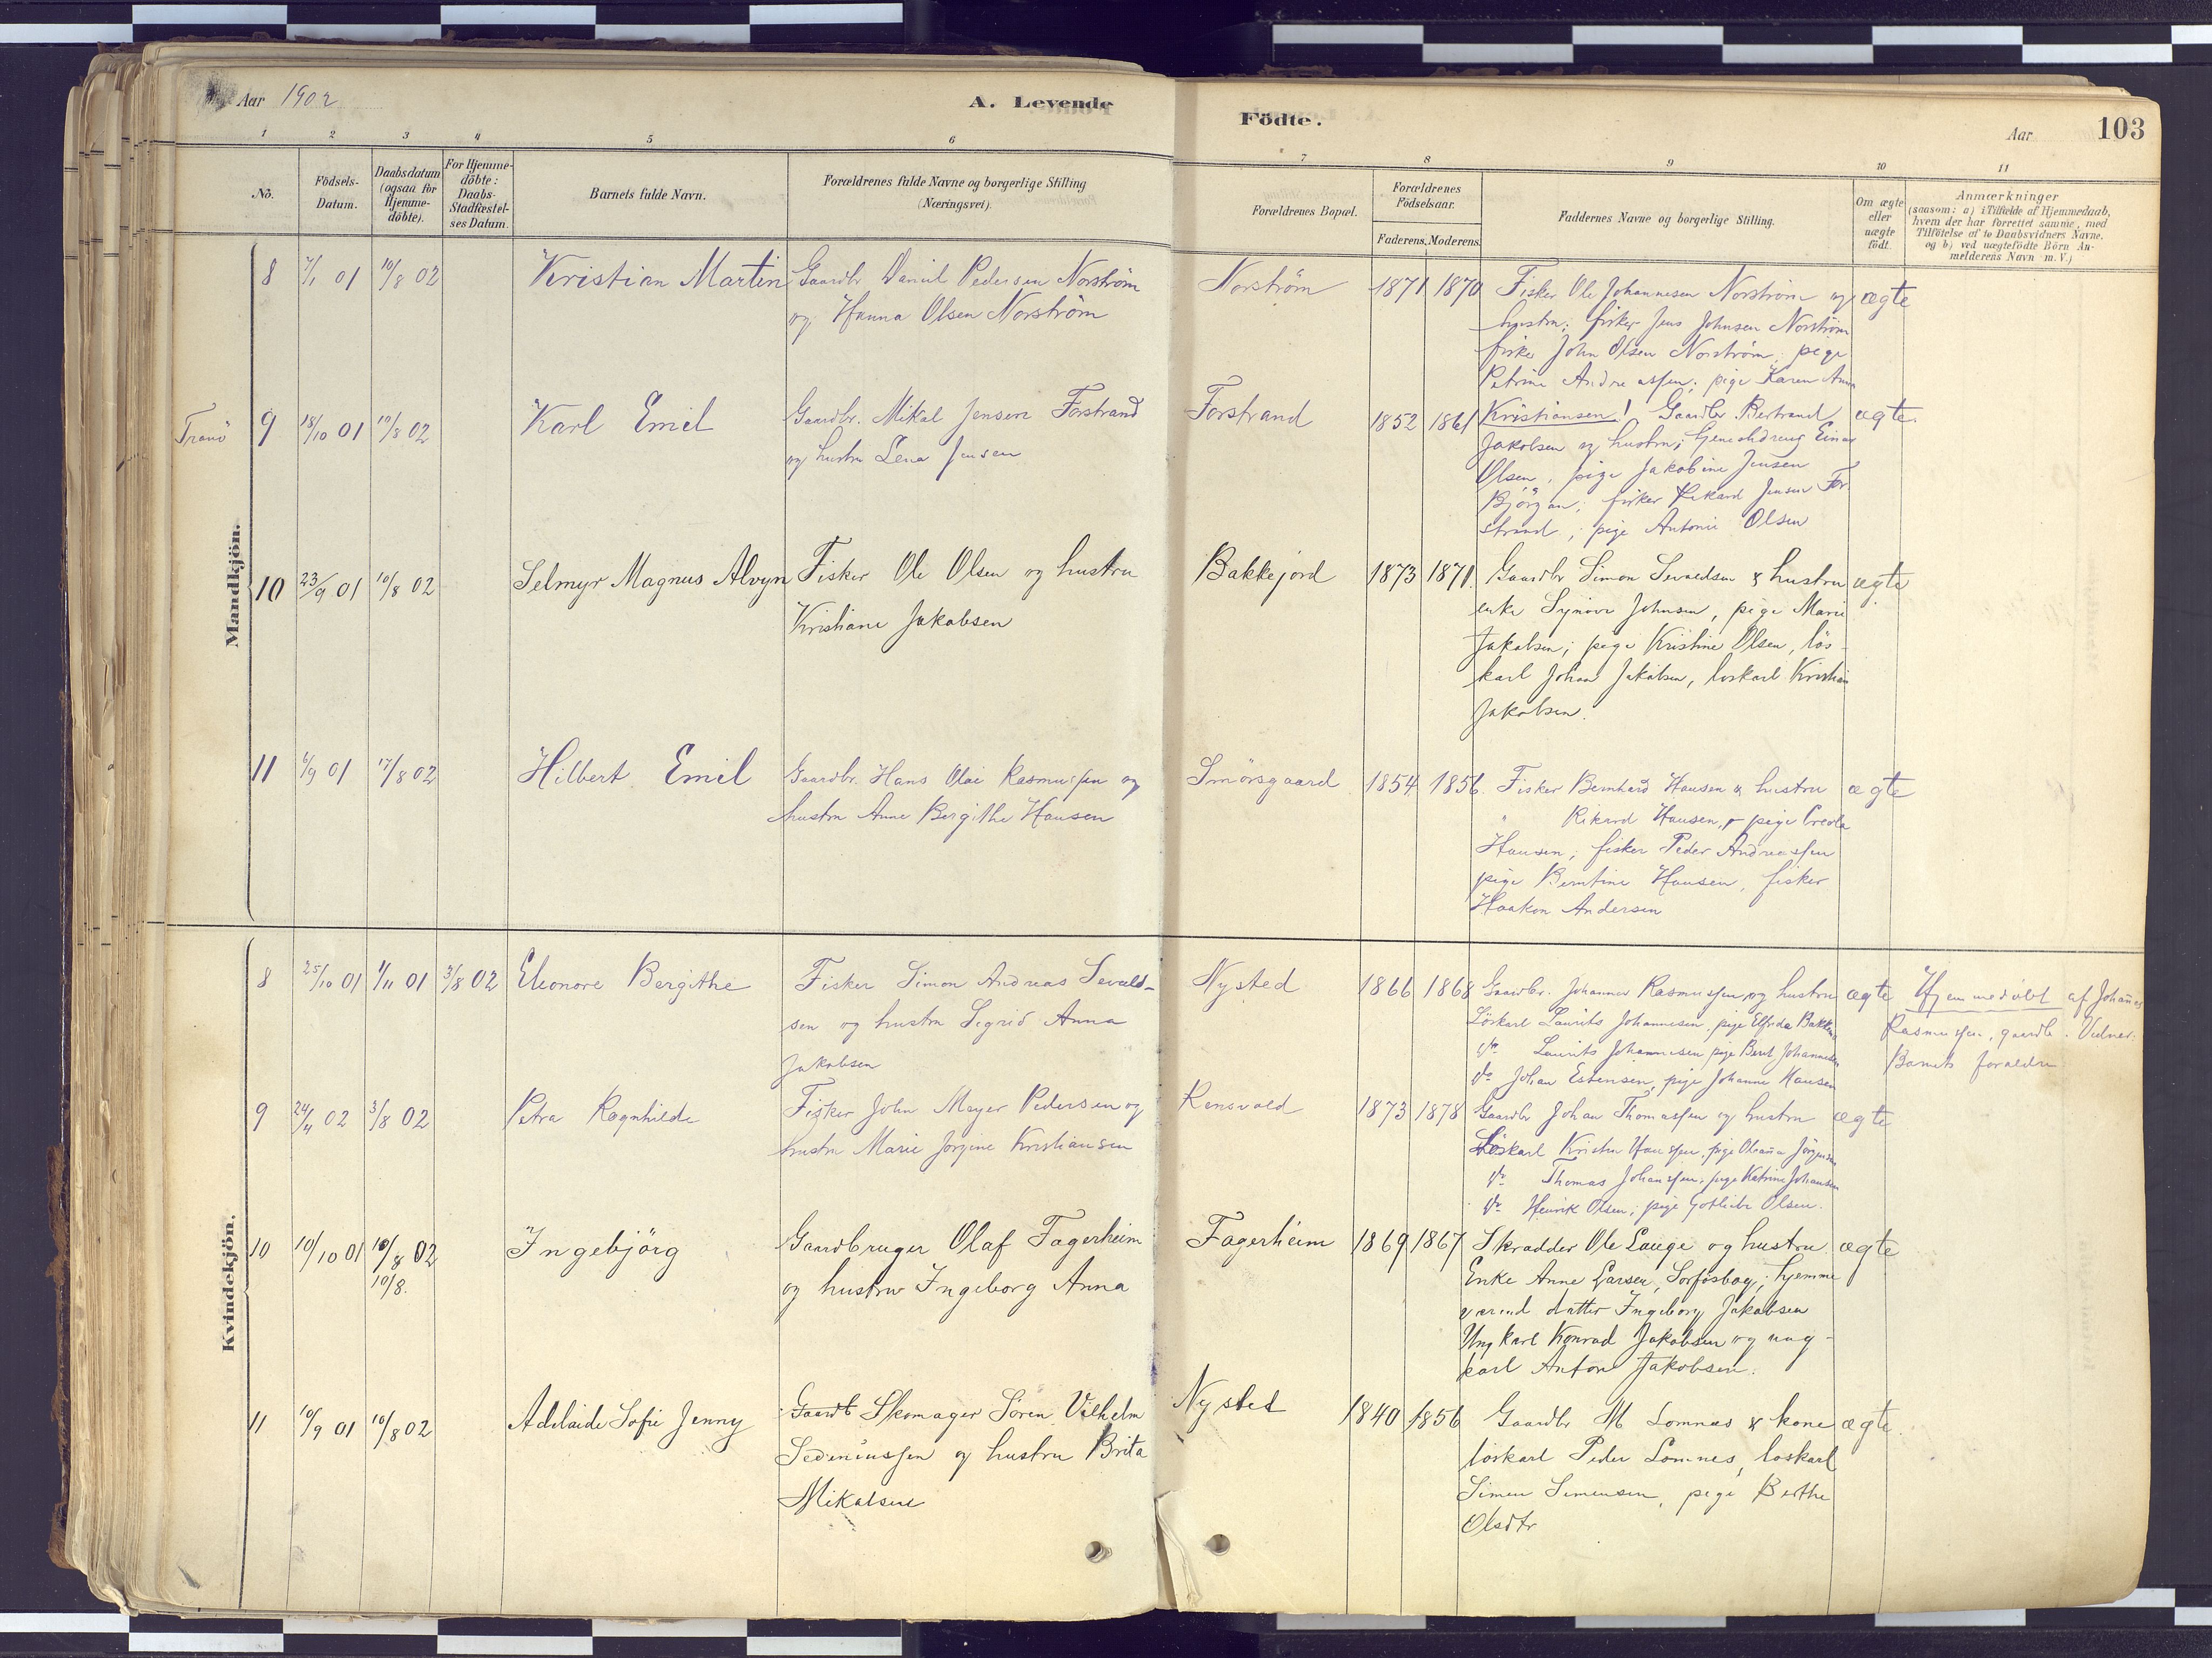 Aar 1902
A. Levende
Födte.
Aar
103
1 2 3 4 5 6 7 8 9 10 11
No.
Födsels-
Datum.
Daabsdatum
(ogsaa for
Hjemme-
döbte).
For Hjemme-
döbte:
Daabs-
Stadfæstel-
ses Datum.
Barnets fulde Navn.
Forældrenes fulde Navne og borgerlige Stilling
(Næringsvei).
Forældrenes Bopæl.
Forældrenes
Födselsaar.
Faderens. Moderens.
Faddernes Navne og borgerlige Stilling.
Om ægte
eller
uægte
födt.
Anmærkninger
(saasom: a) i Tilfælde af Hjemmedaab,
hvem der har forrettet samme, med
Tilföielse af to Daabsvidners Navne.
og b) ved uægtefödte Börn An-
melderens Navn m. V.)
Mandkjön.
8 7/1 01 10/8 02 Kristian Martin
Gaardbr Daniel Pedersen Norström
og Hanna Olsen Norström
Norström 1871 1870
Fisker Ole Johannesen Norström og
hustru; fisker Jens Johnsen Norström
fisker John Olsen Norström; pige
Petrine Andreassen; pige Karen Anna
Kristiansen!
ægte
Tranö
9 18/10 01 10/8 02 Karl Emil
Gaardbr. Mikal Jensen Forstrand
og hustru Lena Jensen
Forstrand 1852 1861
Gaardbr Bertrand
Jakobsen og hustru; Einar
Olsen, pige Jakobine Jensen
Björgan; fisker Rikard Jensen For
strand; pige Antonie Olsen
ægte.
10 23/9 01 10/8 02 Selmyr Magnus Alvyn
Fisker Ole Olsen og hustru
Kristiane Jakobsen
Bakkejord 1873 1871.
Gaardbr Simon Sevaldsen & hustru
enke Synöve Johnsen, pige Marie
Jakobsen; pige Kristine Olsen, lös-
karl Johan Jakobsen, loskarl Kristian
Jakobsen.
ægte
11 6/9 01 17/8 02 Hilbert Emil
Gaardbr. Hans Olai Rasmussen og
hustru Anne Bergithe Hansen
Smörsgaard 1854 1856.
Fisker Bernhard Hansen & hustru
" Rikard Hansen, pige
Hansen; fisker Peder Andreassen
pige Berntine Hansen, fisker
Haakon Andersen
ægte
Kvindekjön.
8 25/10 01 1/11 01 3/8 02 Eleonore Bergithe
Fisker Simon Andreas Sevald-
sen og hustru Sigrid Anna
Jakobsen
Nysted 1866 1868
Gaardbr. Johannes Rasmussen og hustru
Löskarl Laurits Johannesen, pige Elfrida Bakken
do Laurits Johannesen pige Berit Johannesen
do Johan Estensen, pige Johanne Hansen
ægte
Hjemmedöbt af Johannes
Rasmussen, gaardb. Vidner:
Barnets forældre
9 24/4 02 3/8 02 Petra Ragnhilde
Fisker John Meyer Pedersen og
hustru Marie Jorgine Kristiansen
Rensvold 1873 1878
Gaardbr Johan Thomassen og hustru
Löskarl Kristen Hanssen, pige Oleanna Jörgensen
do Thomas Johanssen, pige Katrine Johansen
do Henrik Olsen; pige Gotliebe Olsen.
ægte
10 10/10 01 10/8 02 Ingebjörg
10/8.
Gaardbruger Olaf Fagerheim
og hustru Ingeborg Anna
Fagerheim 1869 1867
Skrædder Ole Lauge og hustru
Enke Anne Larsen, Sorfosbog; hjemme
værend datter Ingeborg Jakobsen
Ungkarl Konrad Jakobsen og ung-
karl Anton Jakobsen.
ægte
11 10/9 01 10/8 02 Adelaide Sofie Jenny
Gaardb Skomager Sören Vilhelm
og hustru Brita
Mikalsen
Nysted 1840 1856
Gaardbr M Lomnes & kone
loskarl Peder Lomnes, loskarl
Simen Simensen, pige Berthe
Olsdtr
ægte.